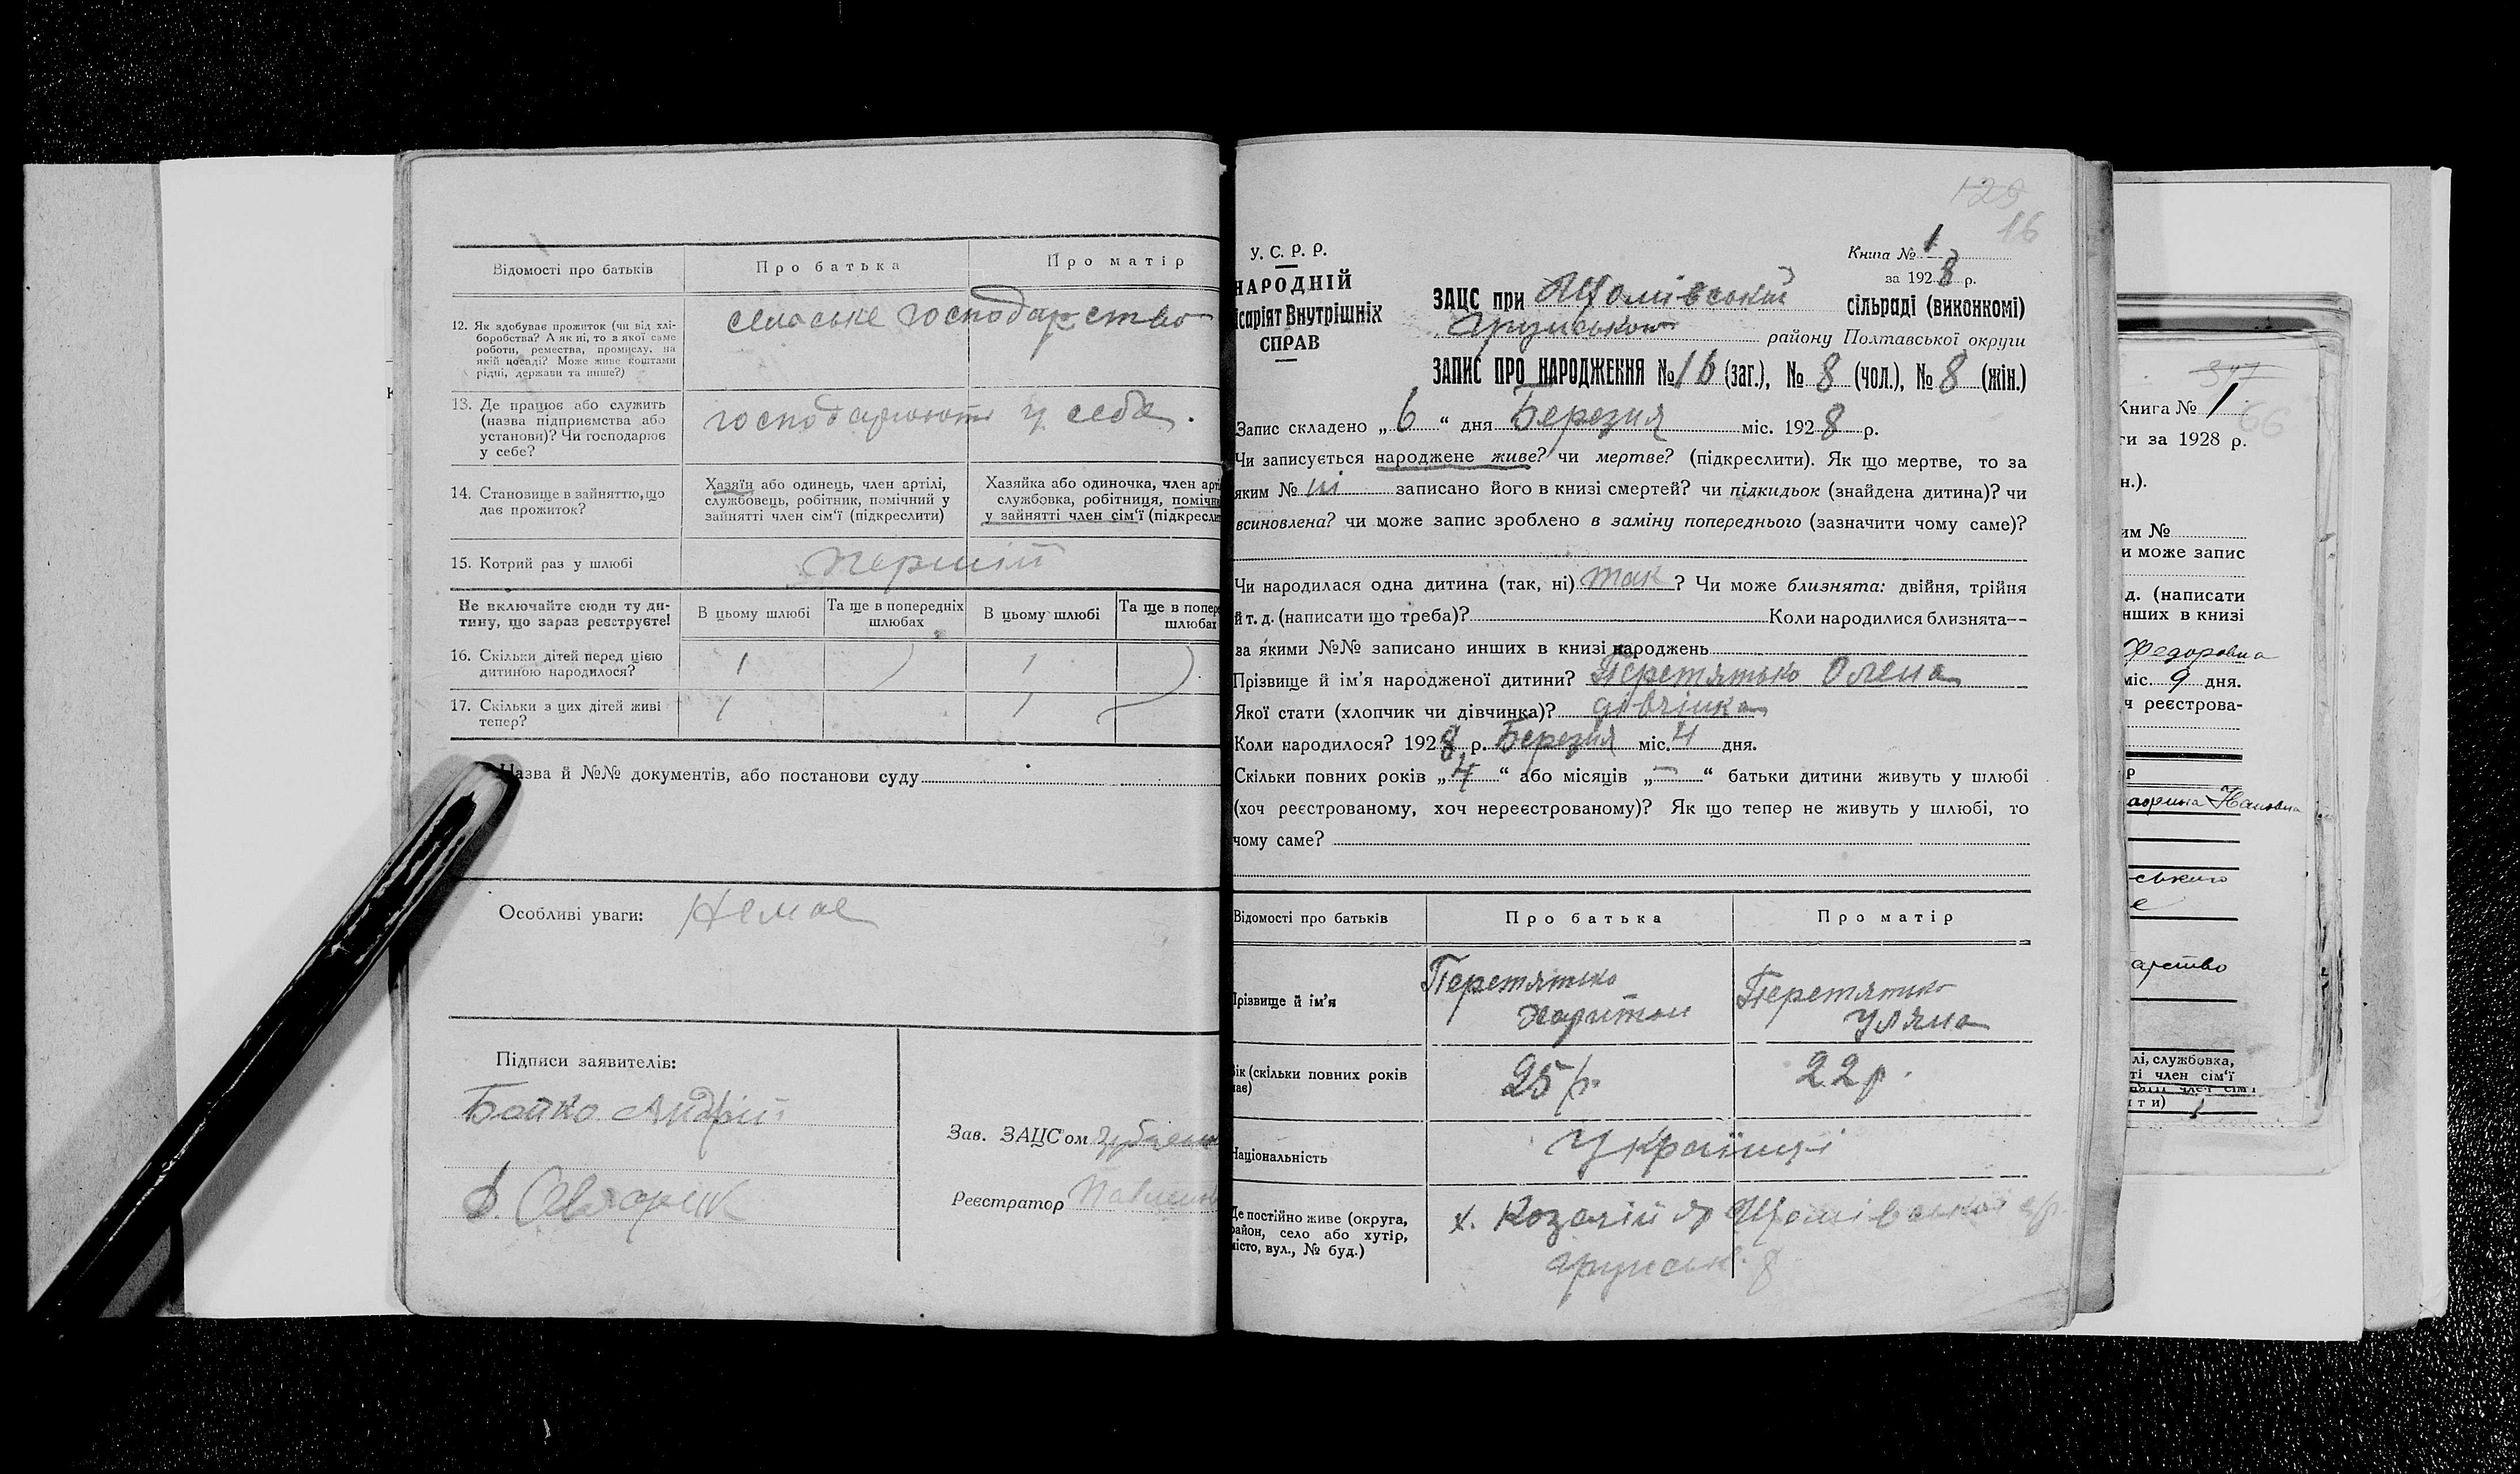 Відомості про батьків
Про батька
Про матір
12. Як здобуває прожиток (чи від хлі-
боробства? А як ні, то з якої саме
роботи, ремества, промислу, на
якій посаді? Може живе коштами
рідні, держави та инше?)
сельське господарство
13. Де працює або служить
(назва підприємства або
установи)? Чи господарює
у себе?
господарюють у себе.
14. Становище в зайняттю, що
дає прожиток?
Хазяїн або одинець, член артілі,
службовець, робітник, помічний у
зайнятті член сім'ї (підкреслити)
Хазяйка або одиночка, член арті
службовка, робітниця, помічн
у зайнятті член сім'ї (підкресли
15. Котрий раз у шлюбі
перший
Не включайте сюди ту ди-
тину, що зараз реєструєте!
В цьому шлюбі
Та ще в попередніх
шлюбах
В цьому шлюбі
Та ще в попере
шлюбах
16. Скільки дітей перед цією
дитиною народилося?
1
1
17. Скільки з цих дітей живі
тепер?
1
1
Назва й №№ документів, або постанови суду
Особливі уваги: Немає
Підписи заявителів:
Бойко Андрій
Зав. ЗАЦСом
Реєстратор
129
16
У. С. Р. Р.
НАРОДНІЙ
ісаріят Внутрішніх
СПРАВ
Книга № 1
за 1928 р.
ЗАЦС при сільраді (виконкомі)
Грунськом району Полтавської округи
ЗАПИС ПРО НАРОДЖЕННЯ № 16 (заг.), № 8 (чол.), № 8 (жін.)
Запис складено „6“ дня Березня міс. 1928 р.
Чи записується народжене живе? чи мертве? (підкреслити). Як що мертве, то за
яким № записано його в книзі смертей? чи підкидьок (знайдена дитина)? чи
всиновлена? чи може запис зроблено в заміну попереднього (зазначити чому саме)?
Чи народилася одна дитина (так, ні) так? Чи може близнята: двійня, трійня
й т. д. (написати що треба)? Коли народилися близнята—
за якими №№ записано инших в книзі народжень
Прізвище й ім'я народженої дитини? Перетятько Олена
Якої стати (хлопчик чи дівчинка)? дівчінка
Коли народилося? 1928 р. Березня міс. 4 дня.
Скільки повних років „4“ або місяців „—“ батьки дитини живуть у шлюбі
(хоч реєстрованому, хоч нереєстрованому)? Як що тепер не живуть у шлюбі, то
чому саме?
Відомості про батьків
Про батька
Про матір
Прізвище й ім'я
Перетятько
Харитон
Перетятько
Уляна
Вік (скільки повних років
має)
25 р.
22 р.
Національність
Українці
Де постійно живе (округа,
район, село або хутір,
місто, вул., № буд.)
х. Козачій
Грунськ. р
347
Книга № 1
66
ти за 1928 р.
н.).
им №
и може запис
д. (написати
нших в книзі
Федоровна
міс. 9 дня.
ч реєстрова-
р
ського
е
арство
лі, службовка,
ті член сім'ї
ити)